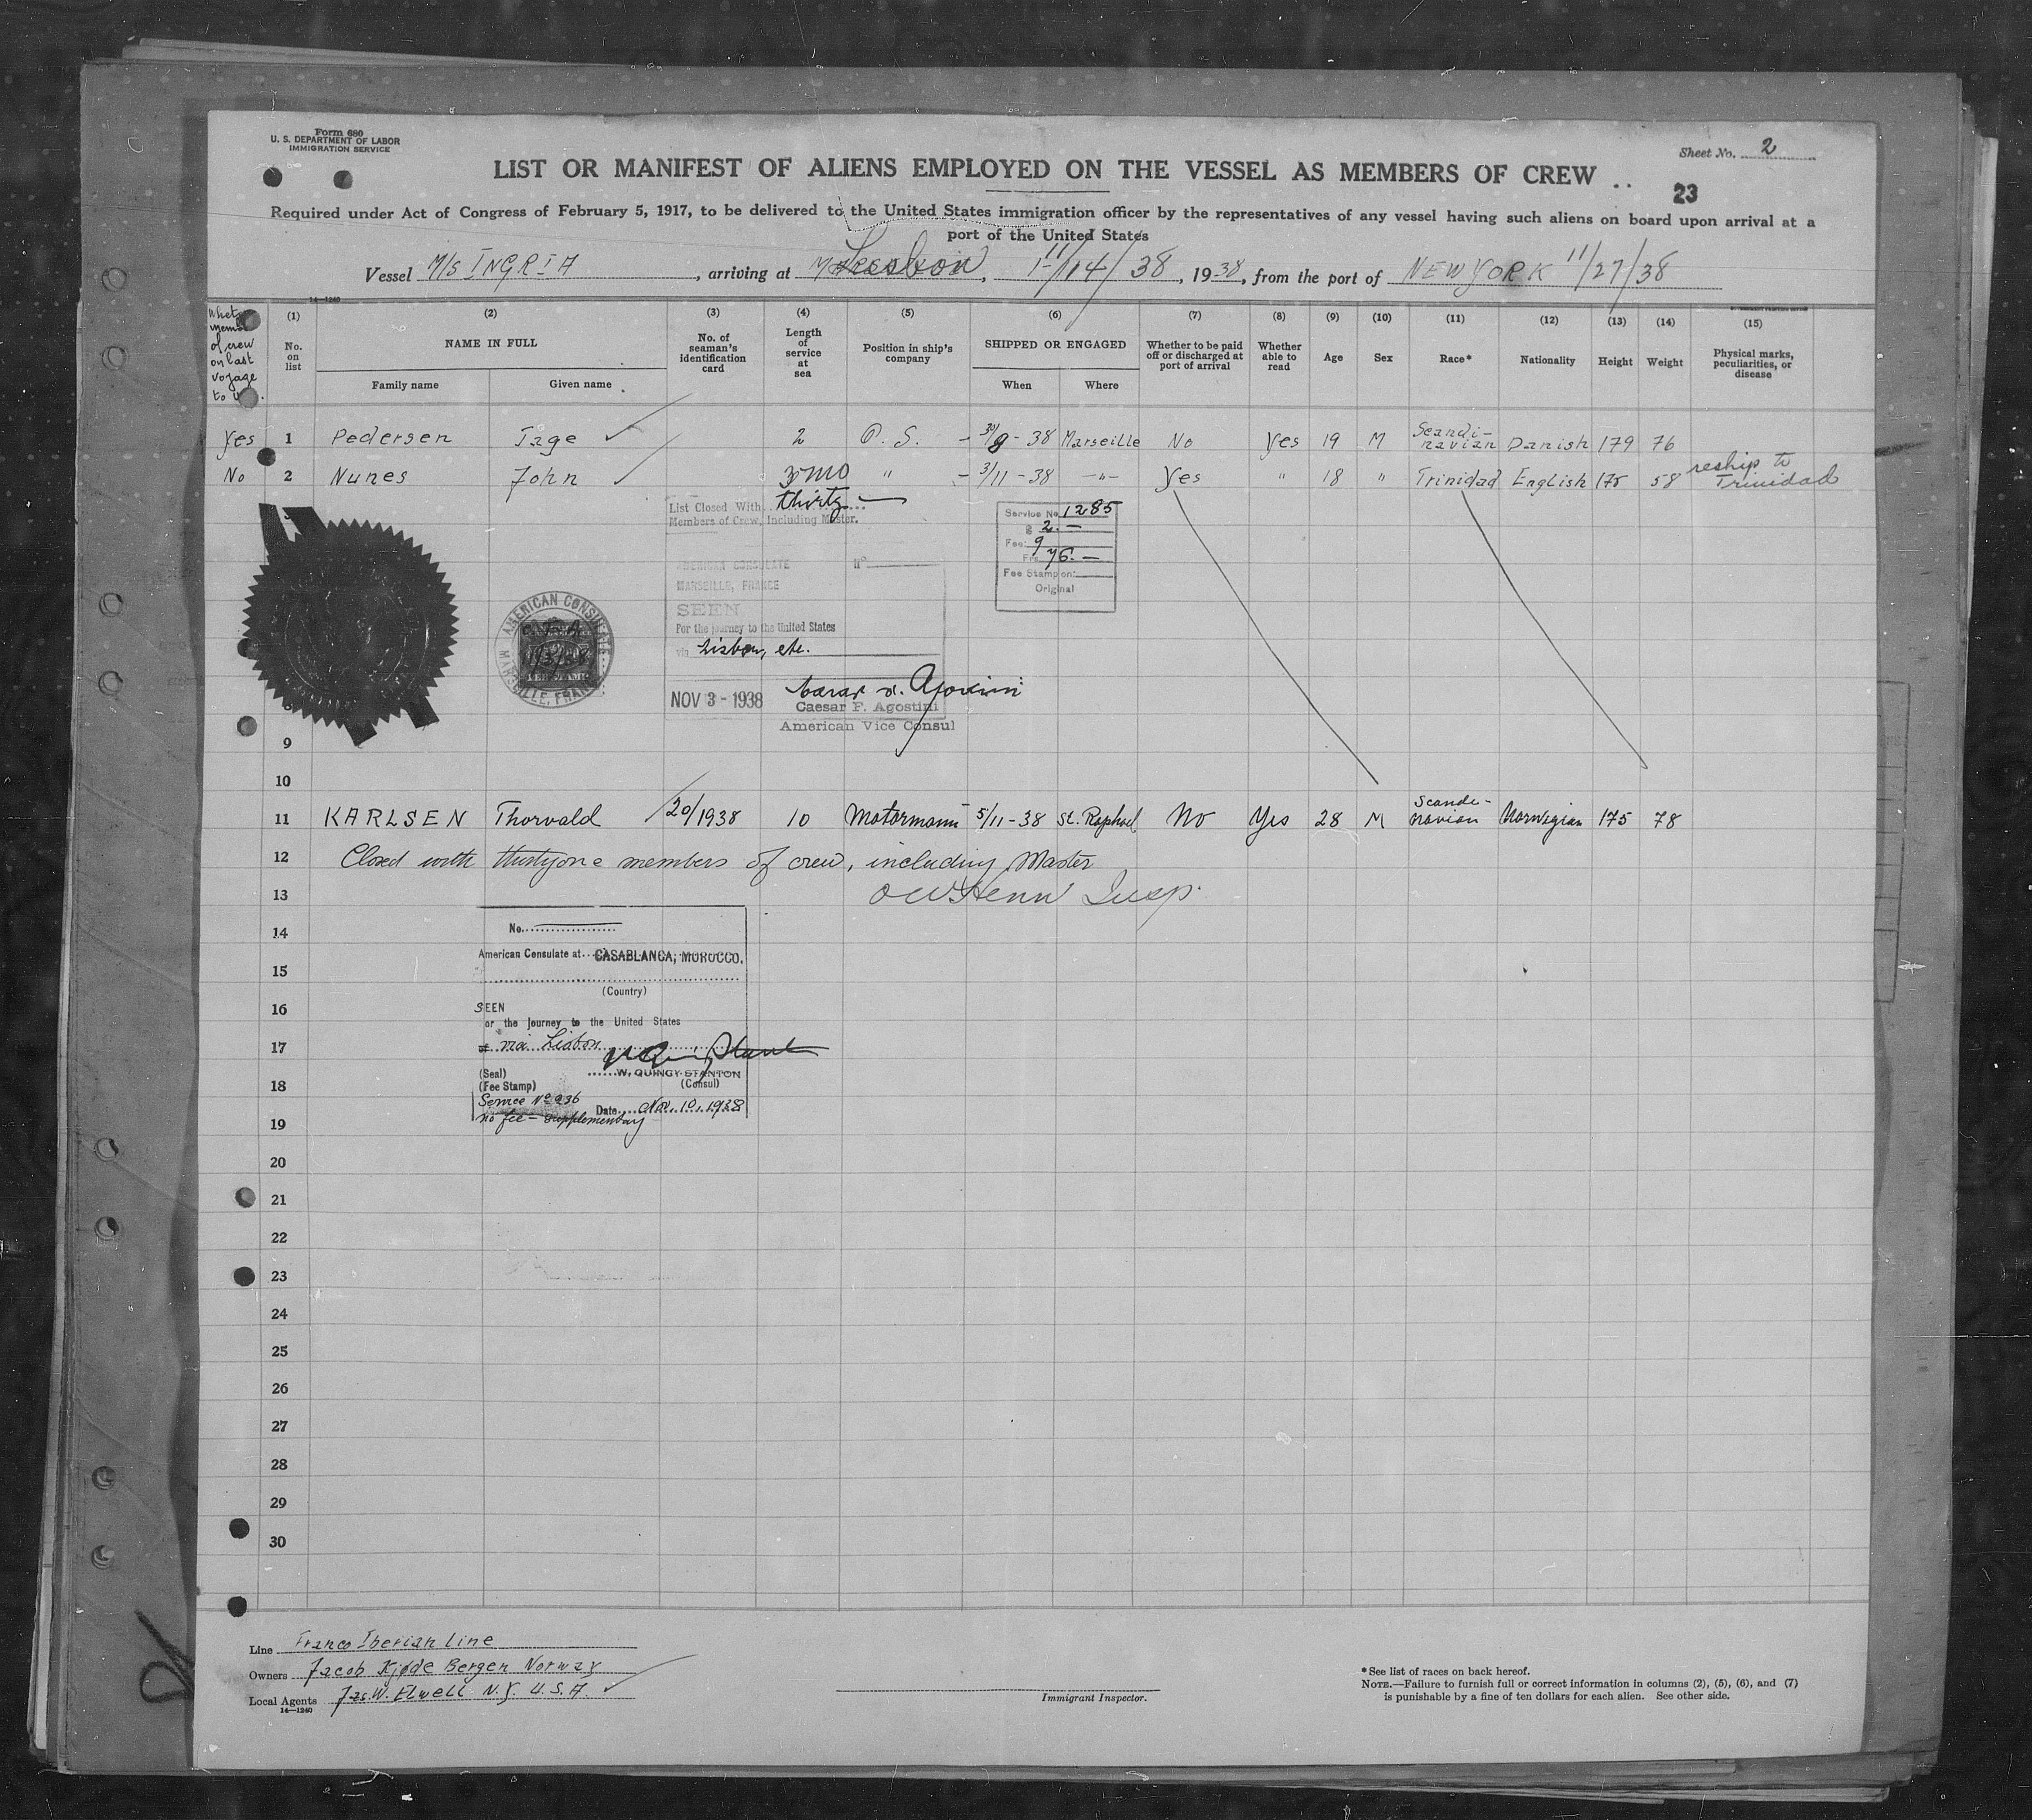 Form 680
U. S. DEPARTMENT OF LABOR
IMMIGRATION SERVICE
Sheet No. 2
LIST OR MANIFEST OF ALIENS EMPLOYED ON THE VESSEL AS MEMBERS OF CREW
23
Required under Act of Congress of February 5, 1917, to be delivered to the United States immigration officer by the representatives of any vessel having such aliens on board upon arrival at a
port of the United States
Vessel M/S INGRIA, arriving at Lisbon, 11/14/38, 1938, from the port of NEW YORK 11/27/38
14—1240
of crew on last voyage to
(1) No. on list
(2) NAME IN FULL
Family name Given name
(3) No. of seaman's identification card
(4) Length of service at sea
(5) Position in ship's company
(6) SHIPPED OR ENGAGED
When Where
(7) Whether to be paid off or discharged at port of arrival
(8) Whether able to read
(9) Age
(10) Sex
(11) Race*
(12) Nationality
(13) Height
(14) Weight
(15) Physical marks, peculiarities, or disease
Yes 1 Pedersen Tage 2 O. S. - 38 Marseille No Yes 19 M Scandi-navian Danish 179 76
No 2 Nunes John 3 mo " - 3/11 - 38 -"- Yes " 18 " Trinidad English 175 58 reship to Trinidad
List Closed With thirty
Members of Crew, Including Master.
Service No. 1285
$ 2.—
Fee: 9
Frs 76.—
Fee Stamp on:
Original
AMERICAN CONSULATE No
MARSEILLE, FRANCE
SEEN
For the journey to the United States
via Lisbon, etc.
NOV 3 - 1938
Caesar F. Agostini
American Vice Consul
AMERICAN CONSULATE MARSEILLE, FRANCE
9
10
11 KARLSEN Thorvald 20/1938 10 Motormann 5/11-38 St. Raphael No Yes 28 M Scandi-navian Norwegian 175 78
12 Closed with thirtyone members of crew, including Master
13 Insp.
14 No.
American Consulate at CASABLANCA, MOROCCO.
15
(Country)
16 SEEN
or the journey to the United States
17 via Lisbon
(Seal) W. QUINCY STANTON
18 (Fee Stamp) (Consul)
Service No 236 Date Nov. 10, 1938
19 no fee - supplementary
20
21
22
23
24
25
26
27
28
29
30
Line Franco Iberian Line
Owners Jacob Kjøde Bergen Norway
Local Agents Jas. W. Elwell N.Y. U.S.A.
14—1240
Immigrant Inspector.
*See list of races on back hereof.
NOTE.—Failure to furnish full or correct information in columns (2), (5), (6), and (7)
is punishable by a fine of ten dollars for each alien. See other side.